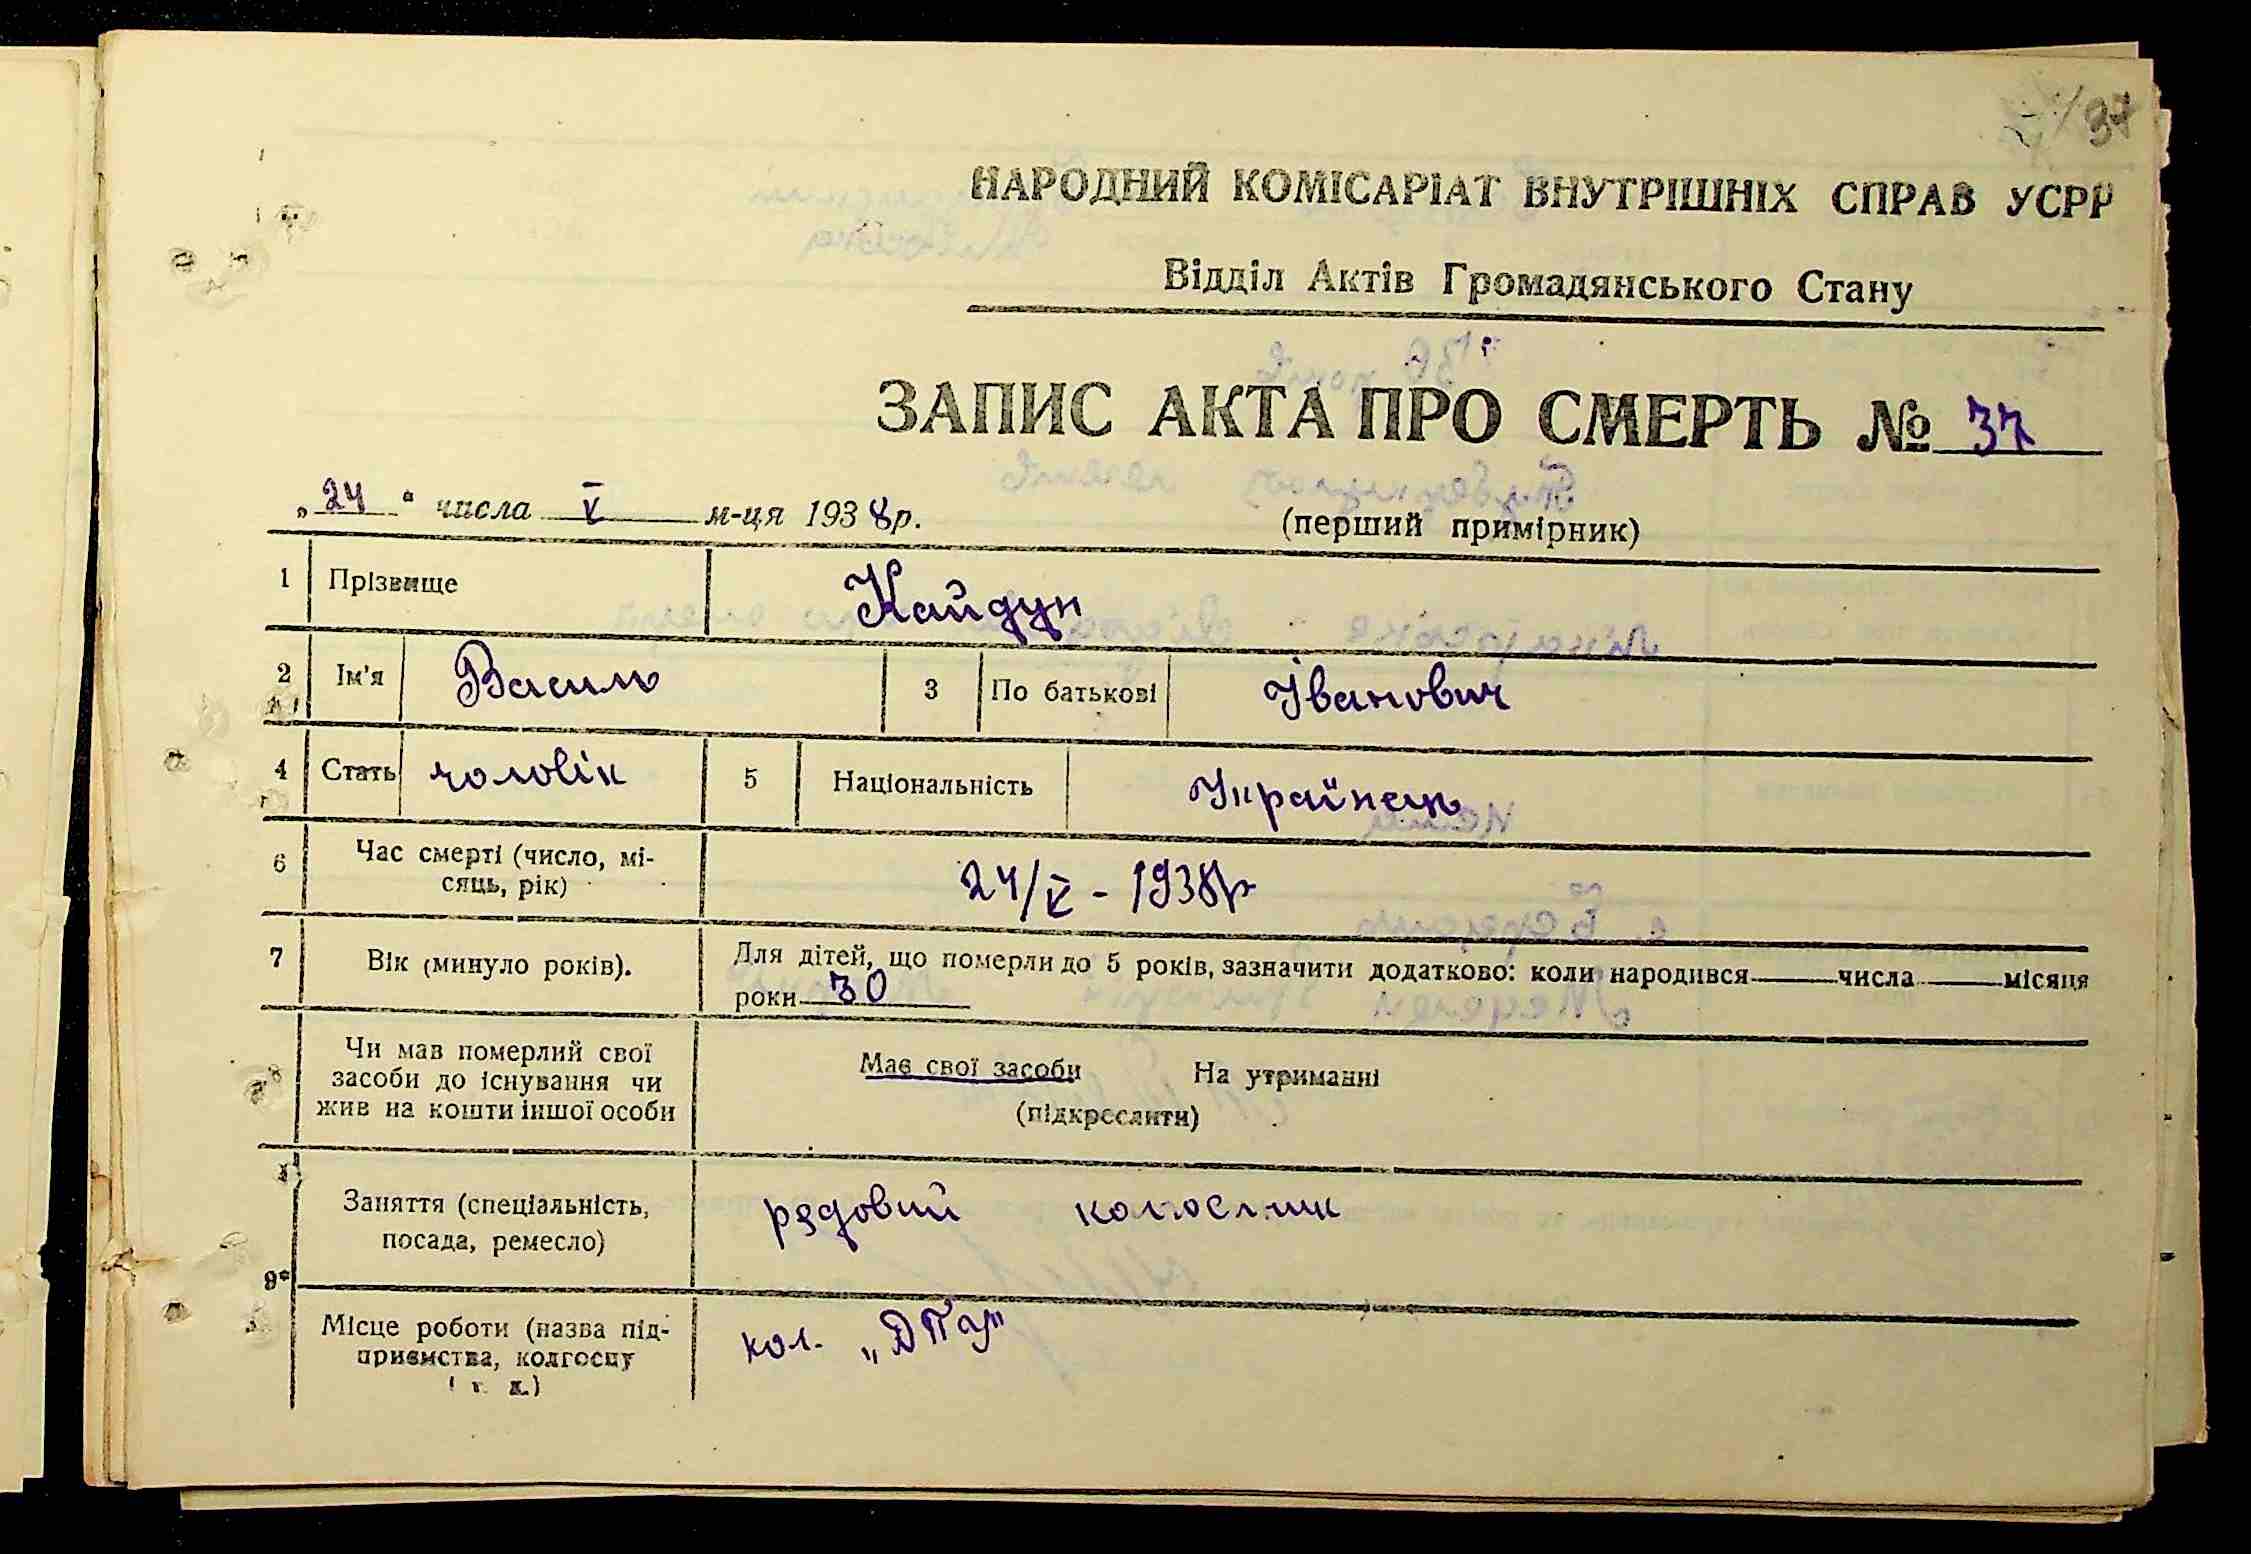 37
НАРОДНИЙ КОМІСАРІАТ ВНУТРІШНІХ СПРАВ УСРР
Відділ Актів Громадянського Стану
ЗАПИС АКТА ПРО СМЕРТЬ № 37
„24“ числа V м-ця 1938р.
(перший примірник)
1 Прізвище Кайдун
2 Ім'я Василь 3 По батькові Іванович
4 Стать чоловік 5 Національність Українець
6 Час смерті (число, мі-
сяць, рік) 24/V - 1938р
7 Вік (минуло років). Для дітей, що померли до 5 років, зазначити додатково: коли народився числа місяця
роки 30
Чи мав померлий свої
засоби до існування чи
жив на кошти іншої особи
Має свої засоби На утриманні
(підкреслити)
Заняття (спеціальність,
посада, ремесло)
рядовий колгоспник
9
Місце роботи (назва під-
приємства, колгоспу
і т. д.)
кол. „ДПУ"